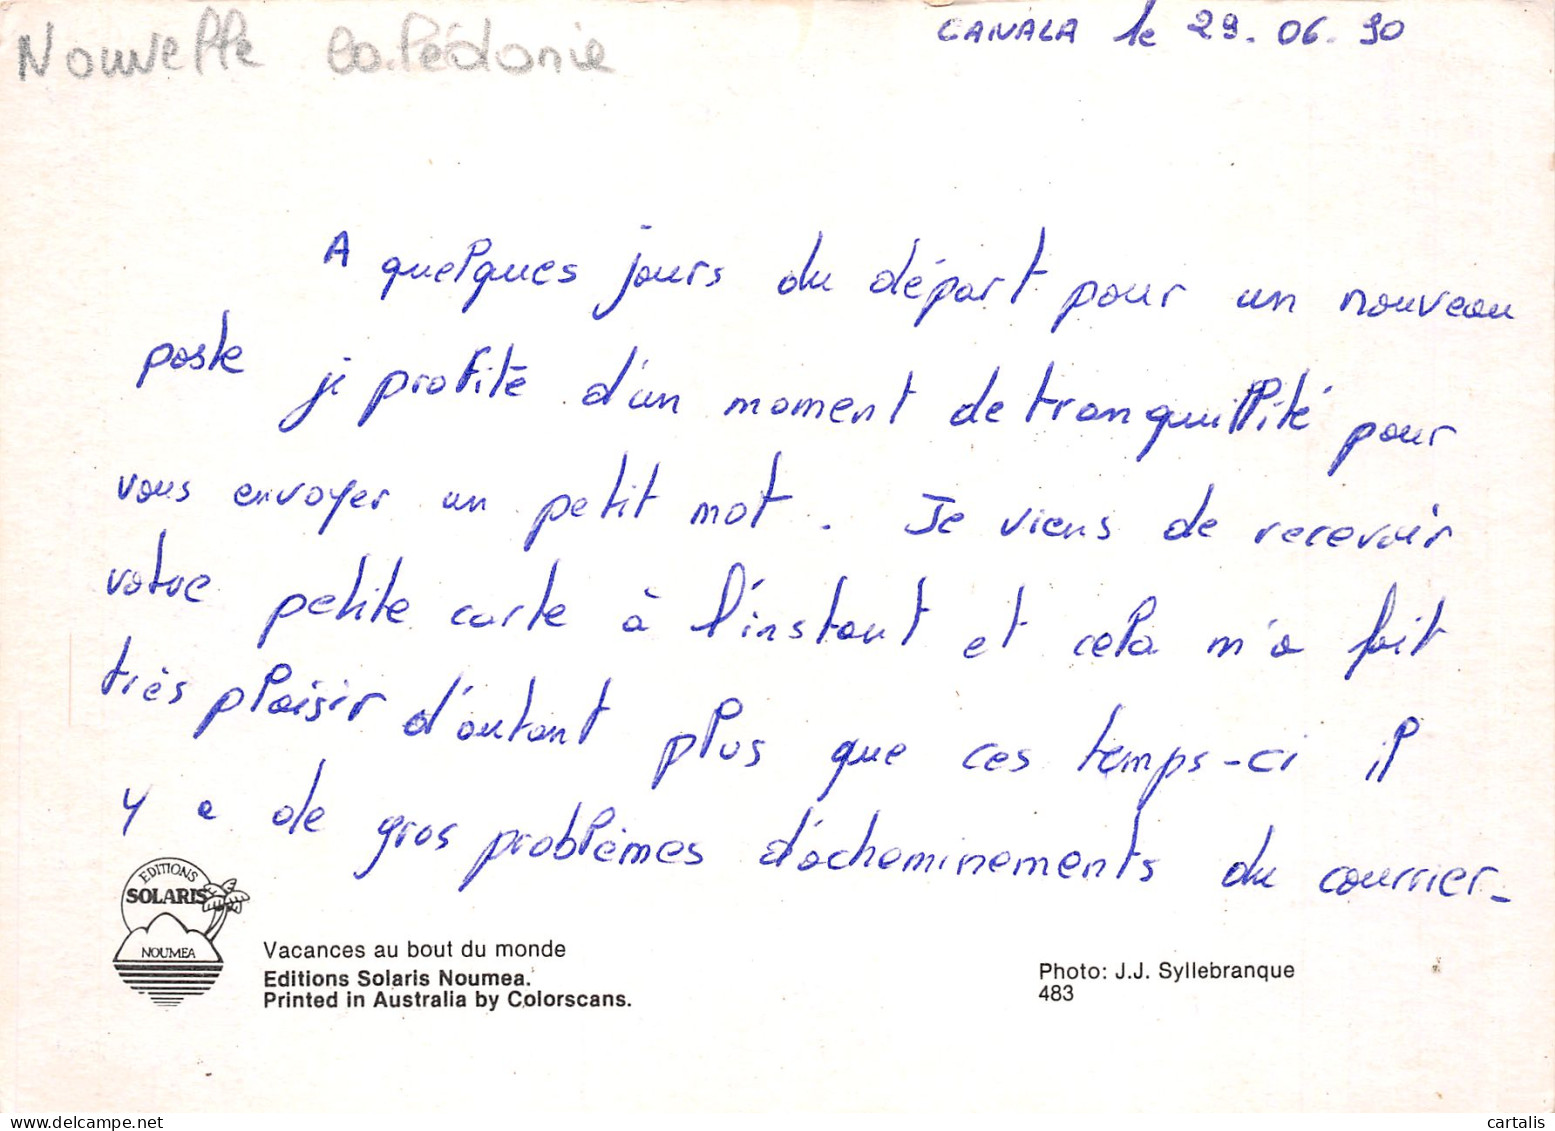 Nouvelle Calédonie
CANALA le 29.06.90
A quelques jours du départ pour un nouveau
poste je profite d'un moment de tranquillité pour
vous envoyer un petit mot. Je viens de recevoir
votre petite carte à l'instant et cela m'a fait
très plaisir d'autant plus que ces temps-ci il
y a de gros problèmes d'acheminements du courrier.
EDITIONS
SOLARIS
NOUMEA
Vacances au bout du monde
Editions Solaris Noumea.
Printed in Australia by Colorscans.
Photo: J.J. Syllebranque
483
cartalis